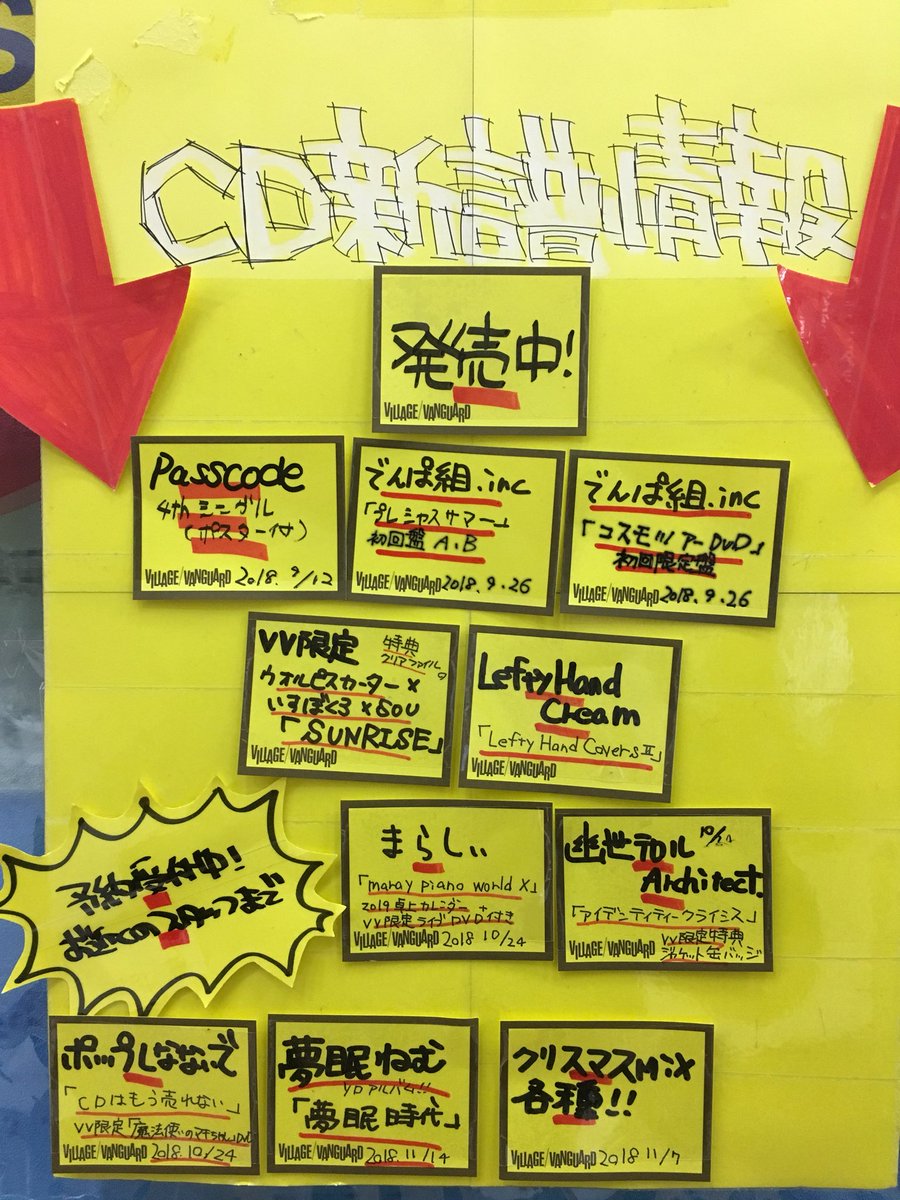 S
CD新譜情報
発売中!
VILLAGE/VANGUARD
Passcode
4thシングル
(ポスター付)
VILLAGE/VANGUARD 2018.9/12
でんぱ組.inc
「プレシャスサマー」
初回盤A.B
VILLAGE/VANGUARD 2018.9.26
でんぱ組.inc
「コスモツアーDVD」
初回限定盤
VILLAGE/VANGUARD 2018.9.26
VV限定 特典
クリアファイル
ウォルピスカーター×
いすぼくろ×50U
「SUNRISE」
VILLAGE/VANGUARD
Lefty Hand
Cream
「Lefty Hand Covers II」
VILLAGE/VANGUARD
予約受付中!
お近くのスタッフまで
まらしぃ
「maray piano world X」
2019卓上カレンダー+
VV限定ライブDVD付き
VILLAGE/VANGUARD 2018 10/24
幽世テロル 10/24
Architect.
「アイデンティティークライシス」
VV限定特典
VILLAGE/VANGUARD ジャケット缶バッジ
ポップしなないで
「CDはもう売れない」
VV限定「魔法使いのマキちゃん」DVD
VILLAGE/VANGUARD 2018.10/24
夢眠ねむ
ソロアルバム!!
「夢眠時代」
VILLAGE/VANGUARD 2018.11/14
クリスマスMix
各種!!
VILLAGE/VANGUARD 2018 11/7